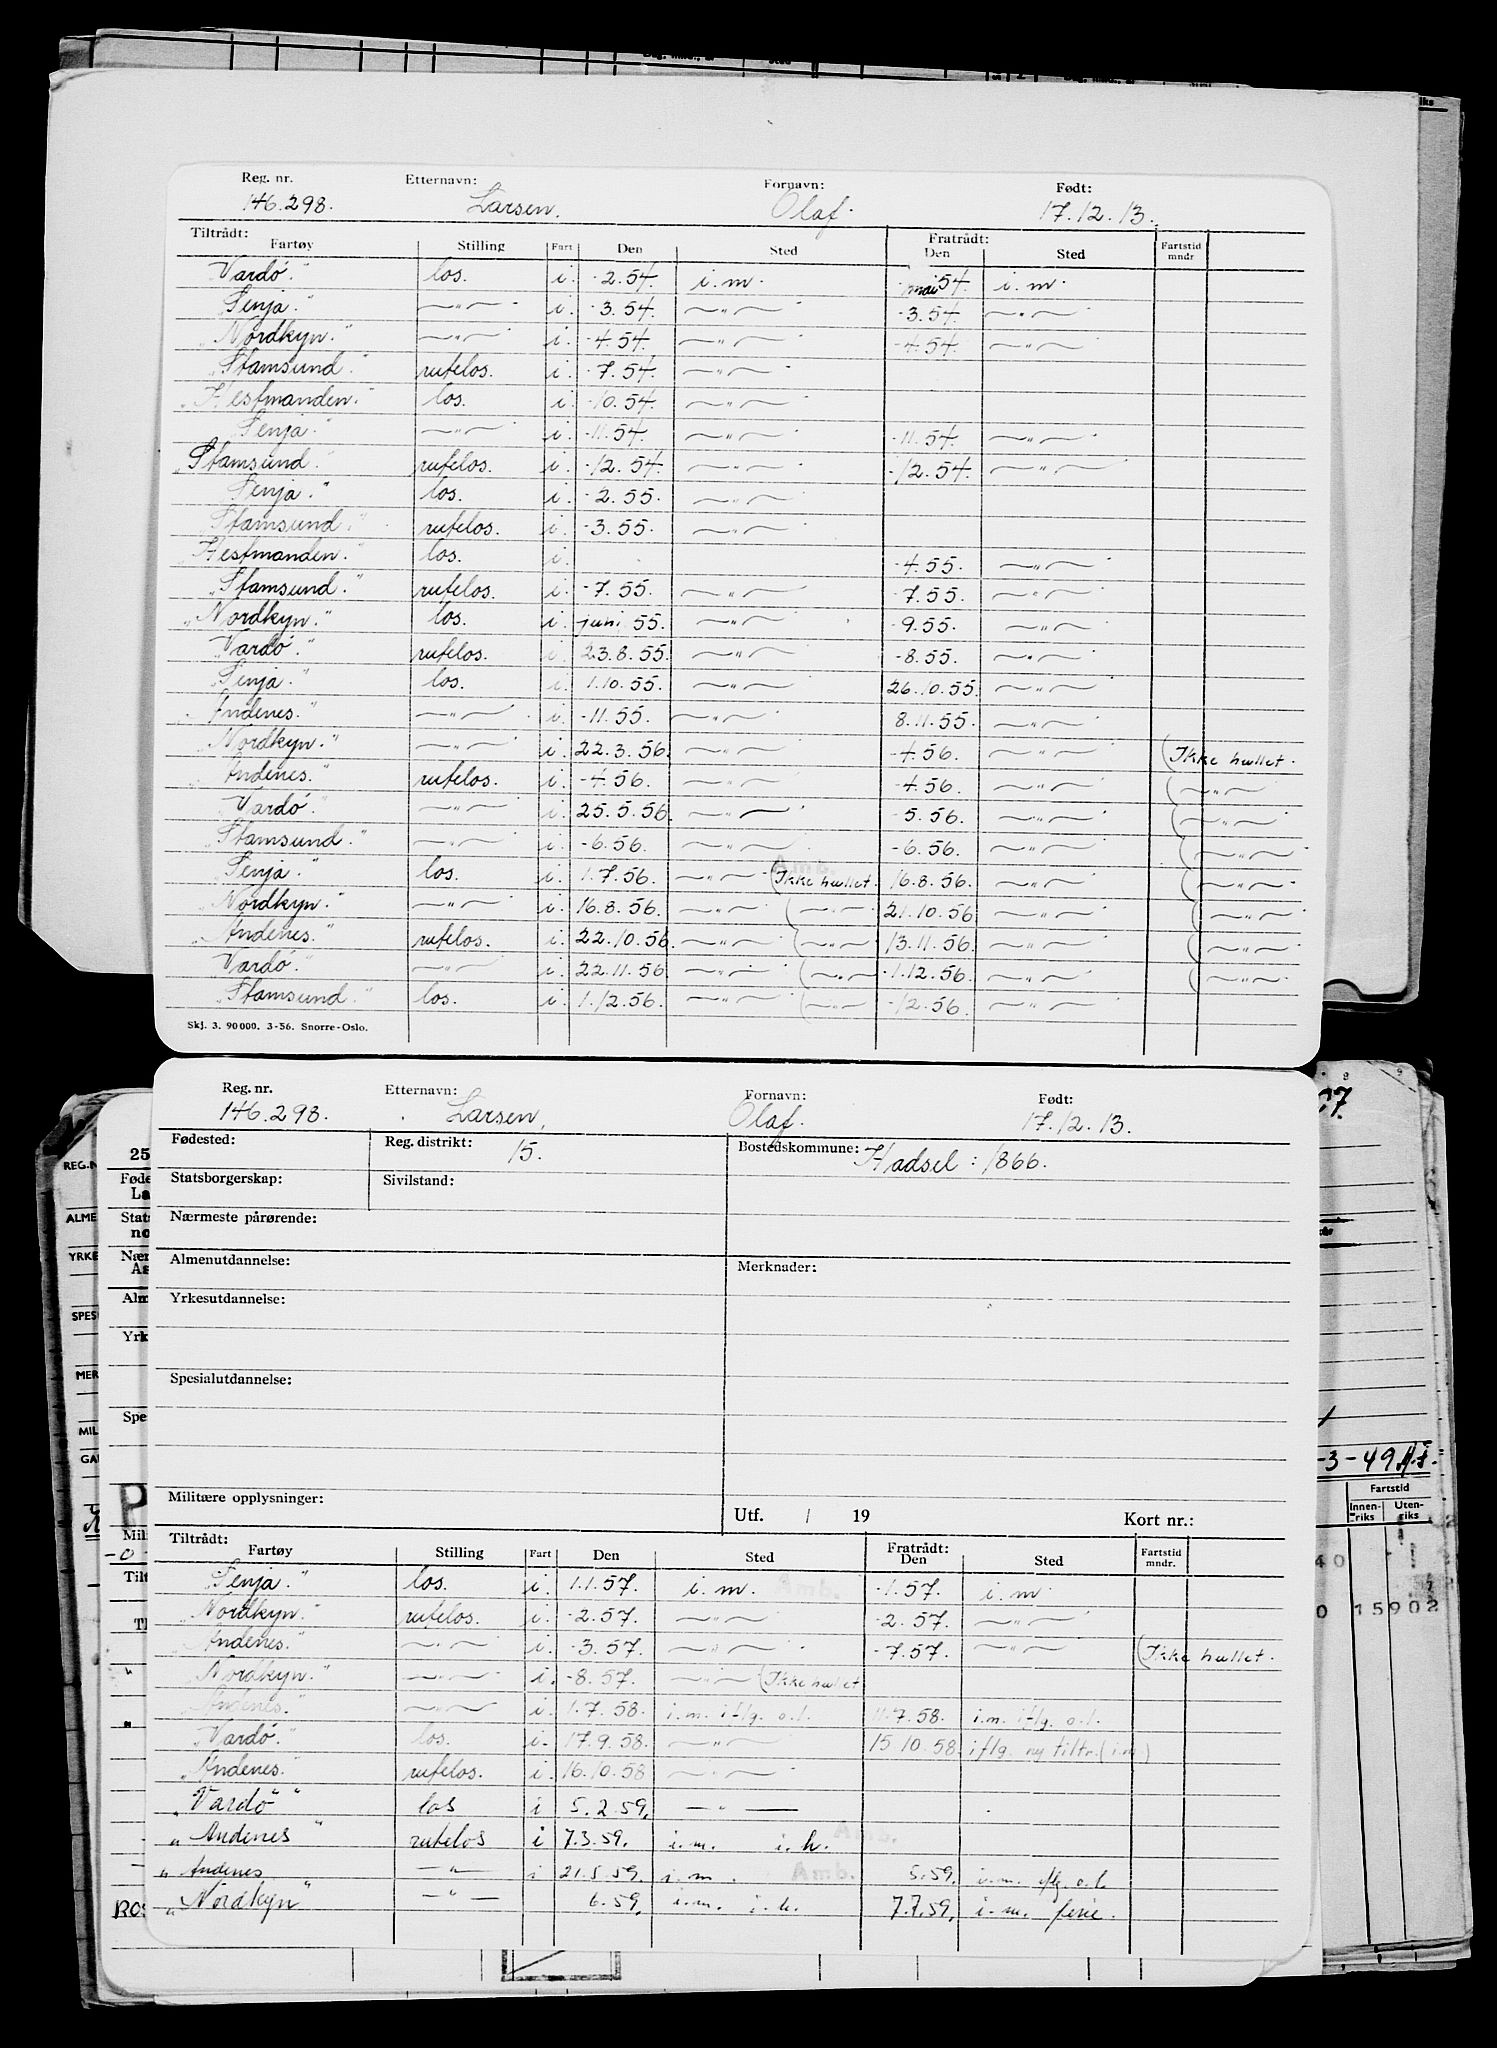 Reg. nr. Etternavn: Fornavn: Født:
146.298. Larsen. Olaf. 17.12.13.
Tiltrådt: Fratrådt:
Fartøy Stilling Fart Den Sted Den Sted Fartstid mndr
"Vardö." los. i. -2.54. i.m. mai 54 i.m.
"Senja." —„— i. -3.54. —„— -3.54. —„—
"Nordkyn." —„— i. -4.54. —„— -4.54. —„—
"Stamsund." rutelos. i. -7.54. —„—
"Hestmanden." los. i. -10.54. —„—
"Senja." —„— i. -11.54. —„— -11.54. —„—
"Stamsund." rutelos. i. -12.54. —„— -12.54. —„—
"Senja." los. i. -2.55. —„—
"Stamsund." rutelos. i. -3.55. —„—
"Hestmanden." los. i. -4.55. —„—
"Stamsund." rutelos. i. -7.55. —„— -7.55. —„—
"Nordkyn." los. i. juni 55. —„— -9.55. —„—
"Vardö." rutelos. i. 23.8.55. —„— -8.55. —„—
"Senja." los. i. 1.10.55. —„— 26.10.55. —„—
"Andenes." —„— i. -11.55. —„— 8.11.55. —„—
"Nordkyn." —„— i. 22.3.56. —„— -4.56. —„— (Ikke hullet.
"Andenes." rutelos. i. -4.56. —„— -4.56. —„— (—„—
"Vardö." —„— i. 25.5.56. —„— -5.56. —„— (—„—
"Stamsund." —„— i. -6.56. —„— -6.56. —„— (—„—
"Senja." los. i. 1.7.56. —„— (Ikke hullet. 16.8.56. —„— (—„—
"Nordkyn." —„— i. 16.8.56. —„— (—„— 21.10.56 —„— (—„—
"Andenes." rutelos. i. 22.10.56. —„— (—„— 13.11.56. —„— (—„—
"Vardö." —„— i. 22.11.56. —„— (—„— -1.12.56. —„— (—„—
"Stamsund." los. i. 1.12.56. —„— (—„— -12.56. —„—
Skj. 3. 90000. 3-56. Snorre-Oslo.
Reg. nr. Etternavn: Fornavn: Født:
146.298. Larsen, Olaf. 17.12.13.
Fødested: Reg. distrikt: 15. Bostedskommune: Hadsel: 1866.
Statsborgerskap: Sivilstand:
Nærmeste pårørende:
Almenutdannelse: Merknader:
Yrkesutdannelse:
Spesialutdannelse:
Militære opplysninger:
Utf. / 19 Kort nr.:
Tiltrådt: Fratrådt:
Fartøy Stilling Fart Den Sted Den Sted Fartstid mndr.
"Senja." los. i. 1.1.57. i.m. Amb. -1.57. i.m.
"Nordkyn." rutelos. i. -2.57. —„— -2.57. —„—
"Andenes." —„— i. -3.57. —„— -7.57. —„— (Ikke hullet.
"Nordkyn." —„— i. -8.57. —„— (Ikke hullet
"Andenes." —„— i. 1.7.58. i.m. iflg. o.l. 11.7.58. i.m. iflg. o.l.
"Vardö." los. i. 17.9.58. —„— 15.10.58. iflg. ny tiltr. (i.m)
"Andenes." rutelos. i. 16.10.58 —„—
"Vardö" los i 5.2.59. —„—
"Andenes" rutelos i 7.3.59. i.m. i.h. Amb.
"Andenes —„— i 21.5.59. i.m. Amb. 5.59. i.m. iflg. o.l
"Nordkyn" —„— 6.59. i.m. i.h. 7.7.59. i.m. ferie.
-3-49
Fartstid
Innenriks Utenriks
40
0 15902